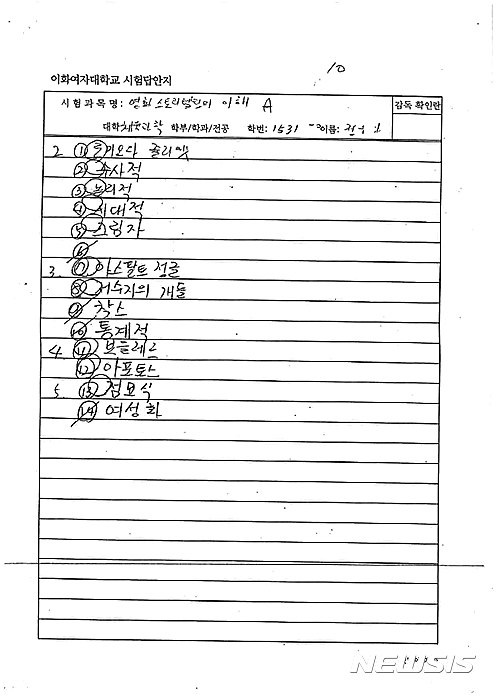 10
이화여자대학교 시험답안지
시험과목명: 영화스토리텔링의 이해 A
감독 확인란
대학 체육과학 학부/학과/전공 학번: 1531 이름:
2 ① 로미오와 줄리엣
② 수사적
③ 논리적
④ 시대적
⑤ 그림자
⑥
3. ⑦ 아스팔트 정글
⑧ 저수지의 개들
⑨ 착스
⑩ 통계적
4 ⑪ 보들레르
⑫ 아포토스
5 ⑬ 점묘식
⑭ 여성화
NEWSIS